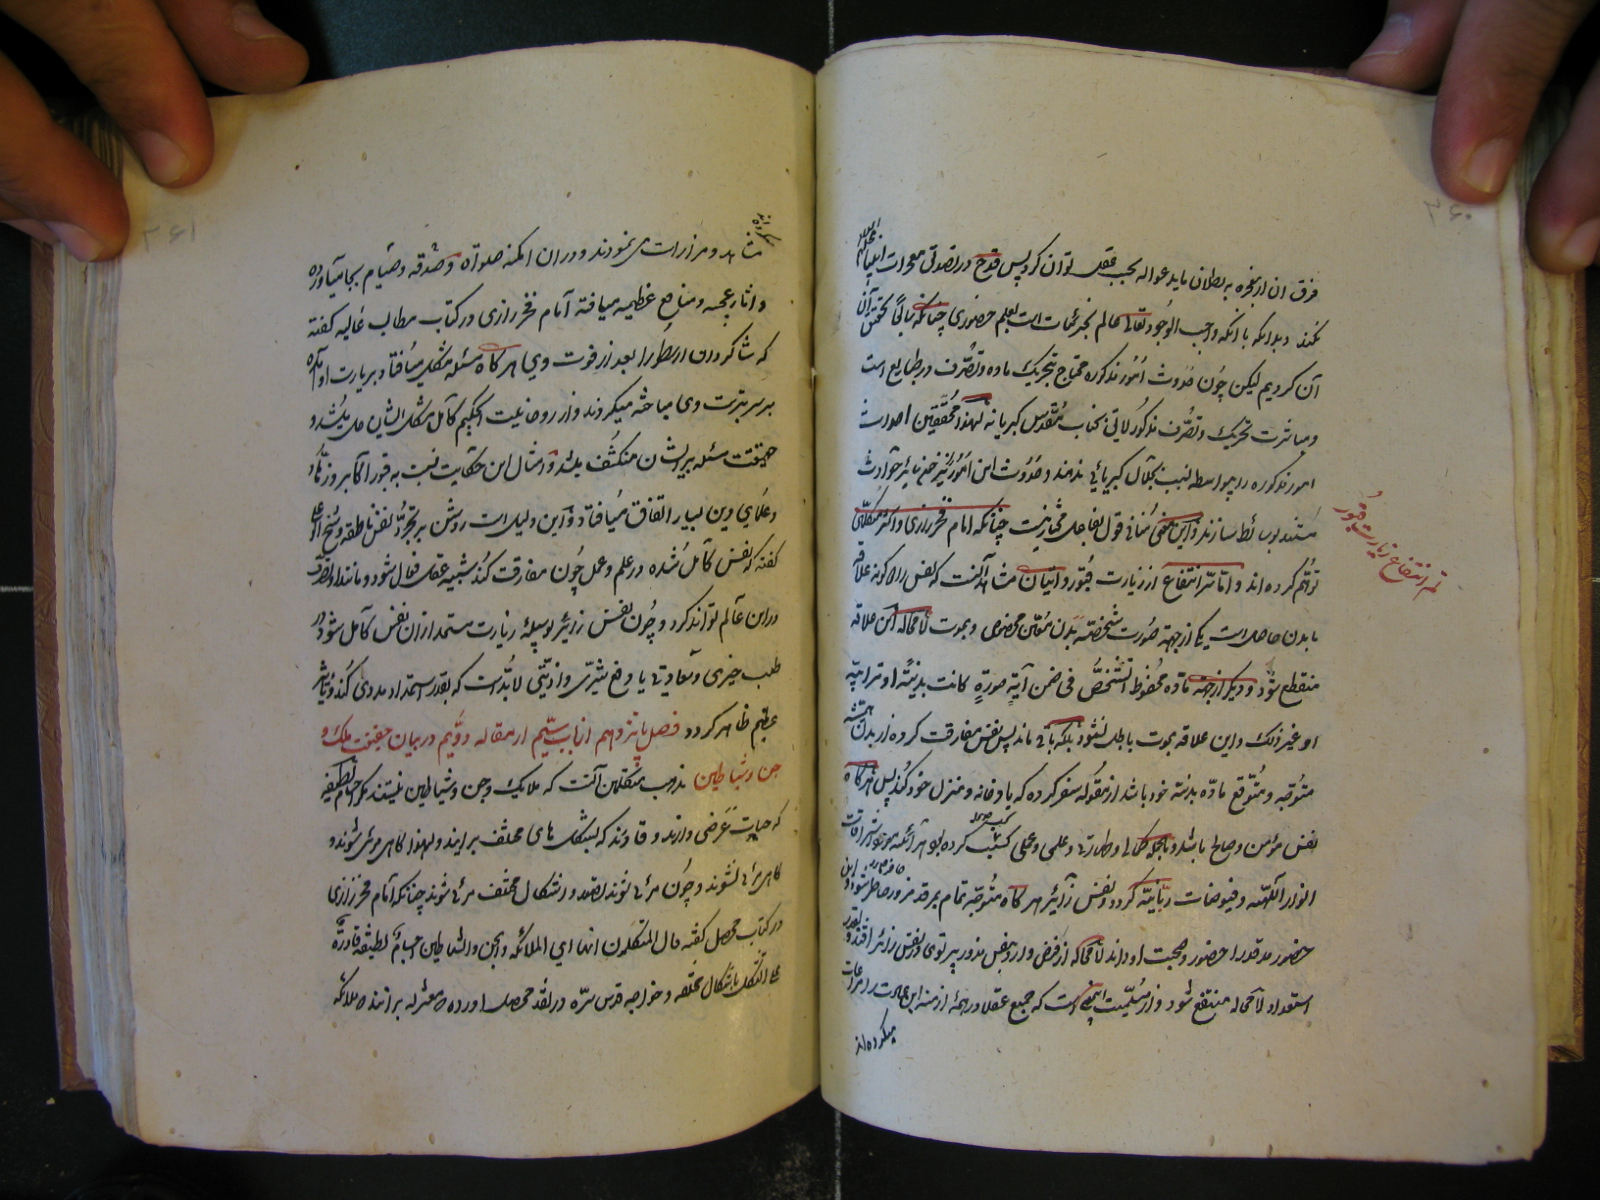 ۲۶۰
فرق ان از معجزه به بطلان ماید عواله بحسب عقل توان کرد پس قدح در تصدیق معجزات انبیا علیهم السلام
نکند و بدانکه با آنکه واجب الوجود تعالی عالم بجزئیات است بعلم حضوری چنانکه سابقا تحقیق آن
آن کردیم لیکن چون حدوث امور مذکوره محتاج بتحریک ماده و تصرف در طبایع است
و مباشرت تحریک و تصرف مذکور لایق بجناب مقدس کبریا نه لهذا محققین اصدرت
امور مذکوره را بیواسطه نسبت بجلال کبریائی ندهند و حدوث این امور را نیز چون سائر حوادث
مستند بوسائط سازند و این معنی منافی قول بفاعل مختار نیست چنانکه امام فخر رازی و اکثر متکلمین
توهم کرده اند و اما سر انتفاع از زیارت قبور و اتیان مشاهد آنست که نفس را دو گونه علاقه
با بدن حاصل است یکی از جهه صورت شخصیه بدن معین مخصوص و بموت لامحاله این علاقه
منقطع شود و دیگر از جهه ماده محفوظ التشخص فی ضمن آیه صورة کانت بدنیه او ترابیه
او غیر ذلک و این علاقه بموت باطل نشود بلکه باقی ماند پس نفس مفارقت کرده از بدن همیشه
متوجه و متوقع ماده بدنیه خود باشد از مقوله سفر کرده که یاد خانه و منزل خود کند پس هرگاه
نفس مؤمن و صالح باشد و بالجمله کمالی و طهارتی و علمی و عملی کسب کرده بود هر آئینه مورد اشراقات
انوار الهیه و فیوضات ربانیه گردد و نفس زائر هرگاه متوجه تمام بمرقد مزور حاضر شود و این
حضور مرقد را حضور و صحبت او داند لامحاله از فیض وارد بنفس مزور پرتوی بر نفس زائر افتد و بقدر
استعداد لامحاله منتفع شود و از مسلمیت این معنی است که جمیع عقلا در همه ازمنه این عادت را مراعات
میکرده اند
سر انتفاع زیارت قبور
۲۶۱
میکرده اند
مشاهد و مزارات می نمودند و در ان امکنه صلواة و صدقه و صیام بجا میآورده
و اثار عجیبه و منافع عظیمه میافته آمام فخر رازی در کتاب مطالب عالیه گفته
که شاگردان ارسطو را بعد از فوت وی هرگاه مسئله مشکل میافتاد بزیارت او آمده
بر سر تربت وی مباحثه میکردند و از روحانیت آن حکیم کامل مشکل ایشان حل میشد و
حقیقت مسئله بر ایشان منکشف میشد و امثال این حکایت نسبت به قبور اکابر و زهاد
و علمای دین بسیار اتفاق میافتاد و این دلیل است روشن بر تجرد نفس ناطقه و شیخ ابو علی
گفته که نفس کامل شده در علم و عمل چون مفارقت کند شبیه عقل فعال شود و مانند او تصرف
در این عالم تواند کرد و چون نفس زائر بوسیله زیارت مستمد از ان نفس کامل شود در
طلب خیری و سعادتی یا دفع شری و اذیتی لابد است که بقدر استعداد مددی کند و تأثیر
عظیم ظاهر گردد فصل پانزدهم از باب سیم از مقاله دویم در بیان حقیقت ملک و
جن و شیاطین مذهب متکلمین آنست که ملایک و جن و شیاطین نیستند مگر اجسام لطیفه
که حیات عرضی دارند و قادرند که بشکل های مختلف برایند و لهذا گاهی مرئی شوند و
گاهی مرئی نشوند و چون مرئی شوند بقصد و اشکال مختلف مرئی شوند چنانکه امام فخر رازی
در کتاب محصل گفته قال المتکلمون انها ای الملائکه و الجن و الشیاطین اجسام لطیفة قادرة
علی التشکل باشکال مختلفه و خواجه قدس سره در نقد محصل اورده که معتزله بر انند که ملائکه